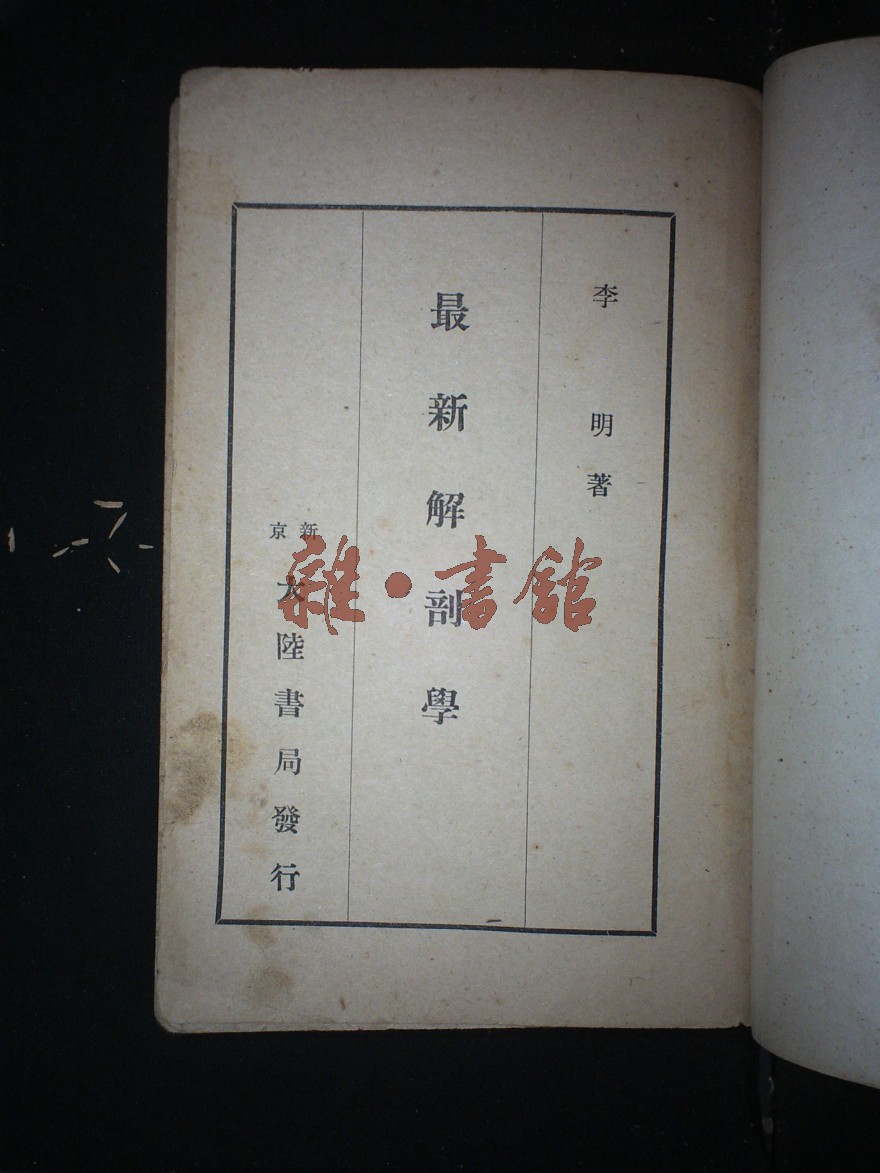 李明著
最新解剖學
新京
大陸書局發行
雜·書館